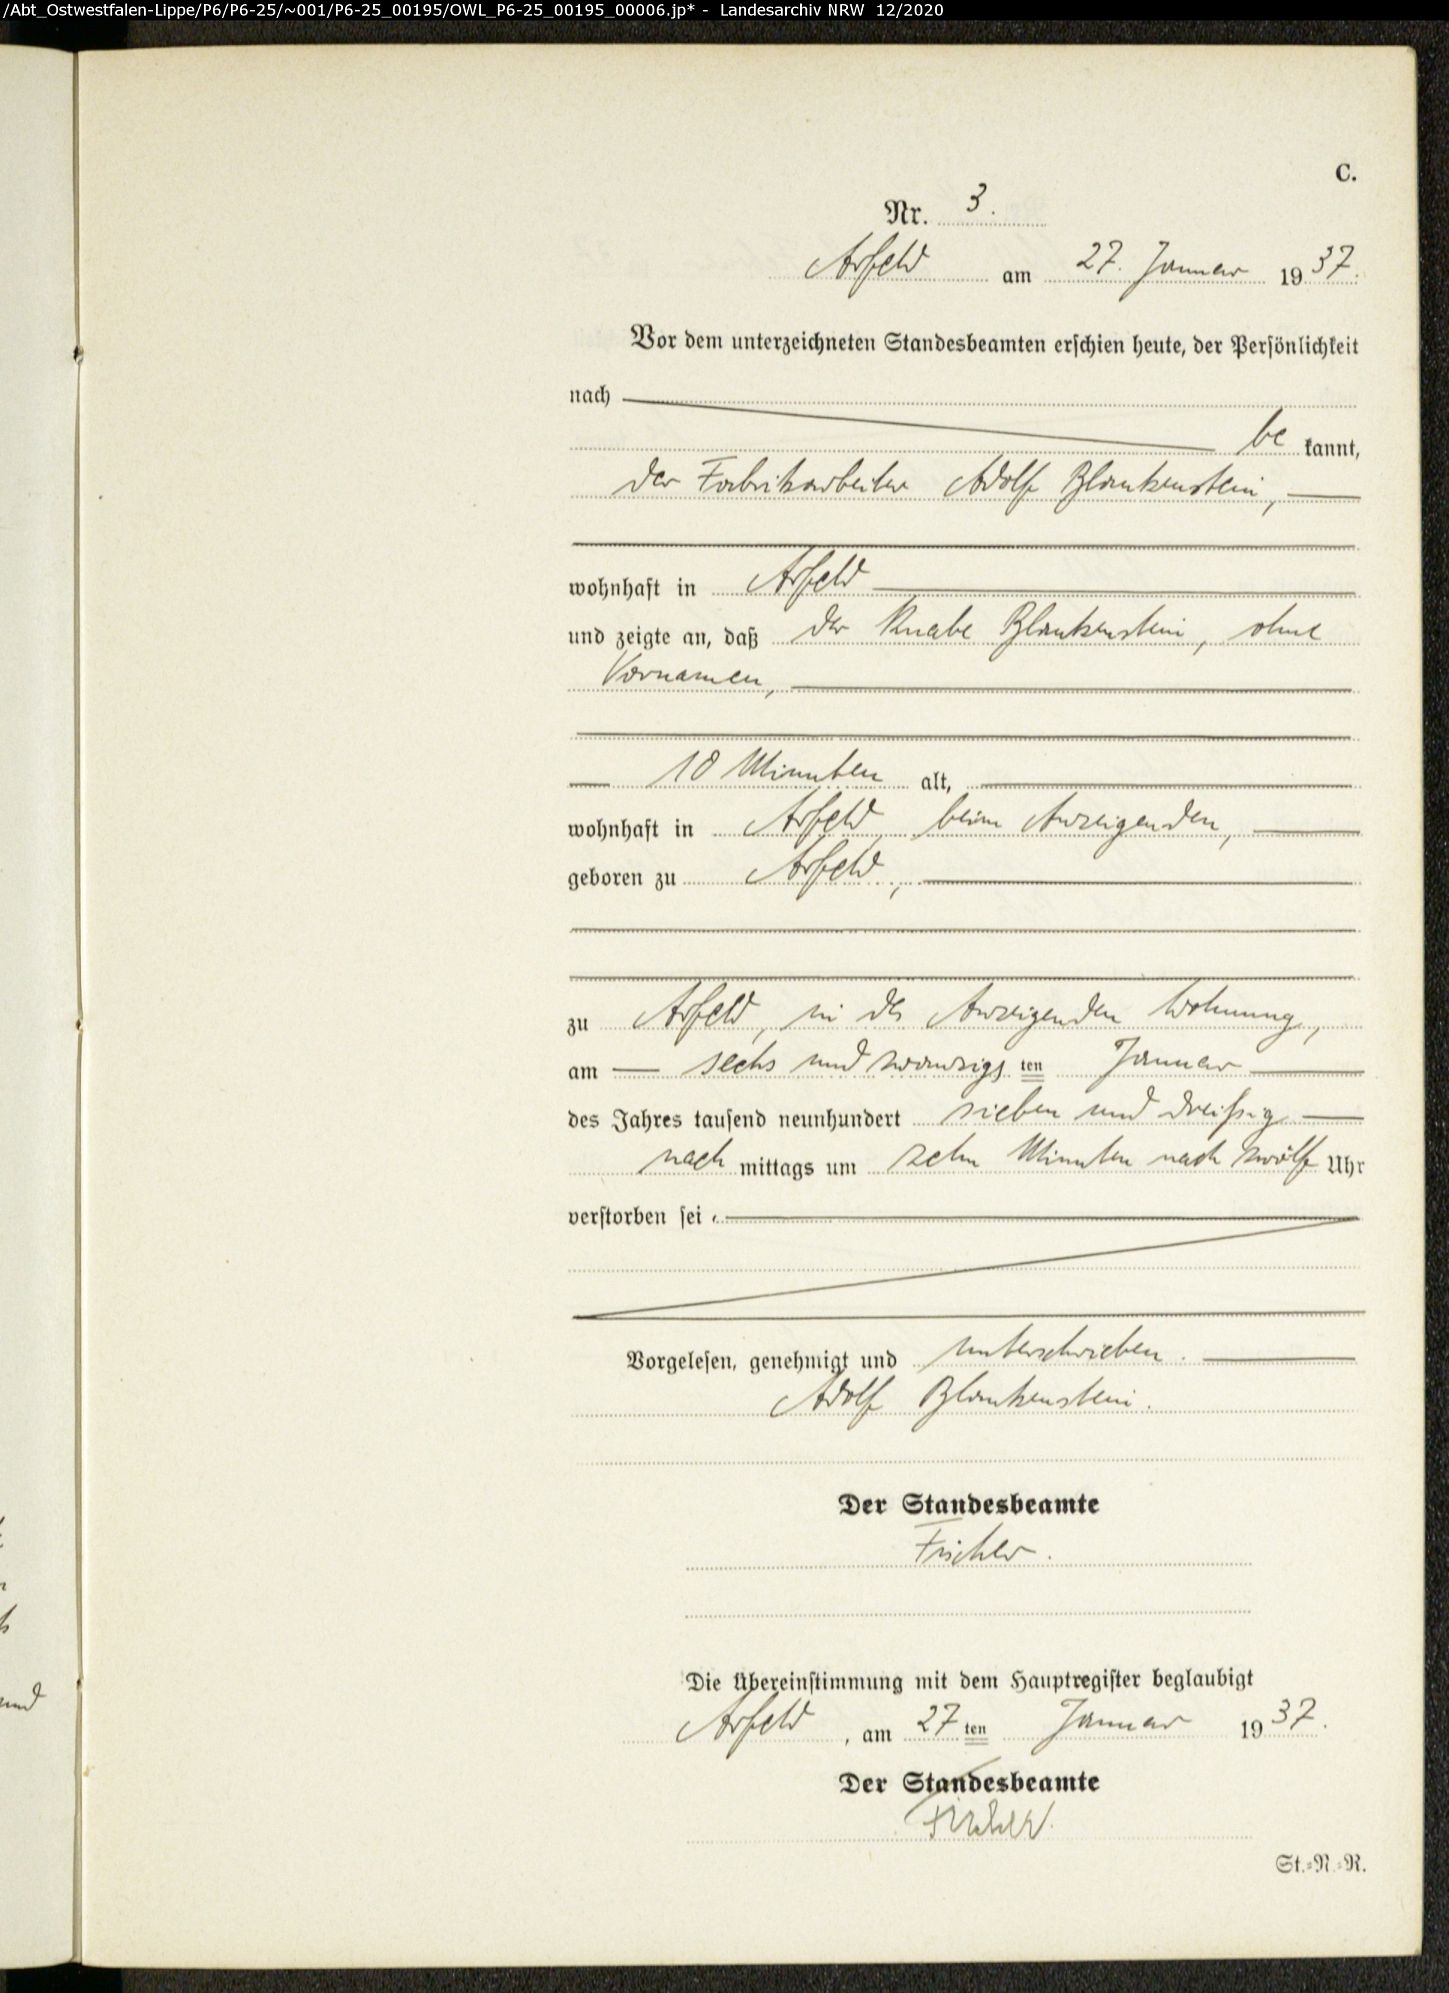 /Abt_Ostwestfalen-Lippe/P6/P6-25/~001/P6-25_00195/OWL_P6-25_00195_00006.jp* - Landesarchiv NRW 12/2020
C.
Nr. 3.
Arfeld am 27. Januar 1937.
Vor dem unterzeichneten Standesbeamten erschien heute, der Persönlichkeit
nach
be kannt,
der Fabrikarbeiter Adolf Blankenstein,
wohnhaft in Arfeld
und zeigte an, daß der Knabe Blankenstein, ohne
Vornamen,
10 Minuten alt,
wohnhaft in Arfeld, beim Anzeigenden,
geboren zu Arfeld,
zu Arfeld, in des Anzeigenden Wohnung,
am sechs und zwanzigs ten Januar
des Jahres tausend neunhundert sieben und dreißig
nach mittags um zehn Minuten nach zwölf Uhr
verstorben sei.
Vorgelesen, genehmigt und unterschrieben.
Adolf Blankenstein.
Der Standesbeamte
Fischer.
Die Übereinstimmung mit dem Hauptregister beglaubigt
Arfeld, am 27ten Januar 1937.
Der Standesbeamte
Fischer.
St.-N.-R.
und